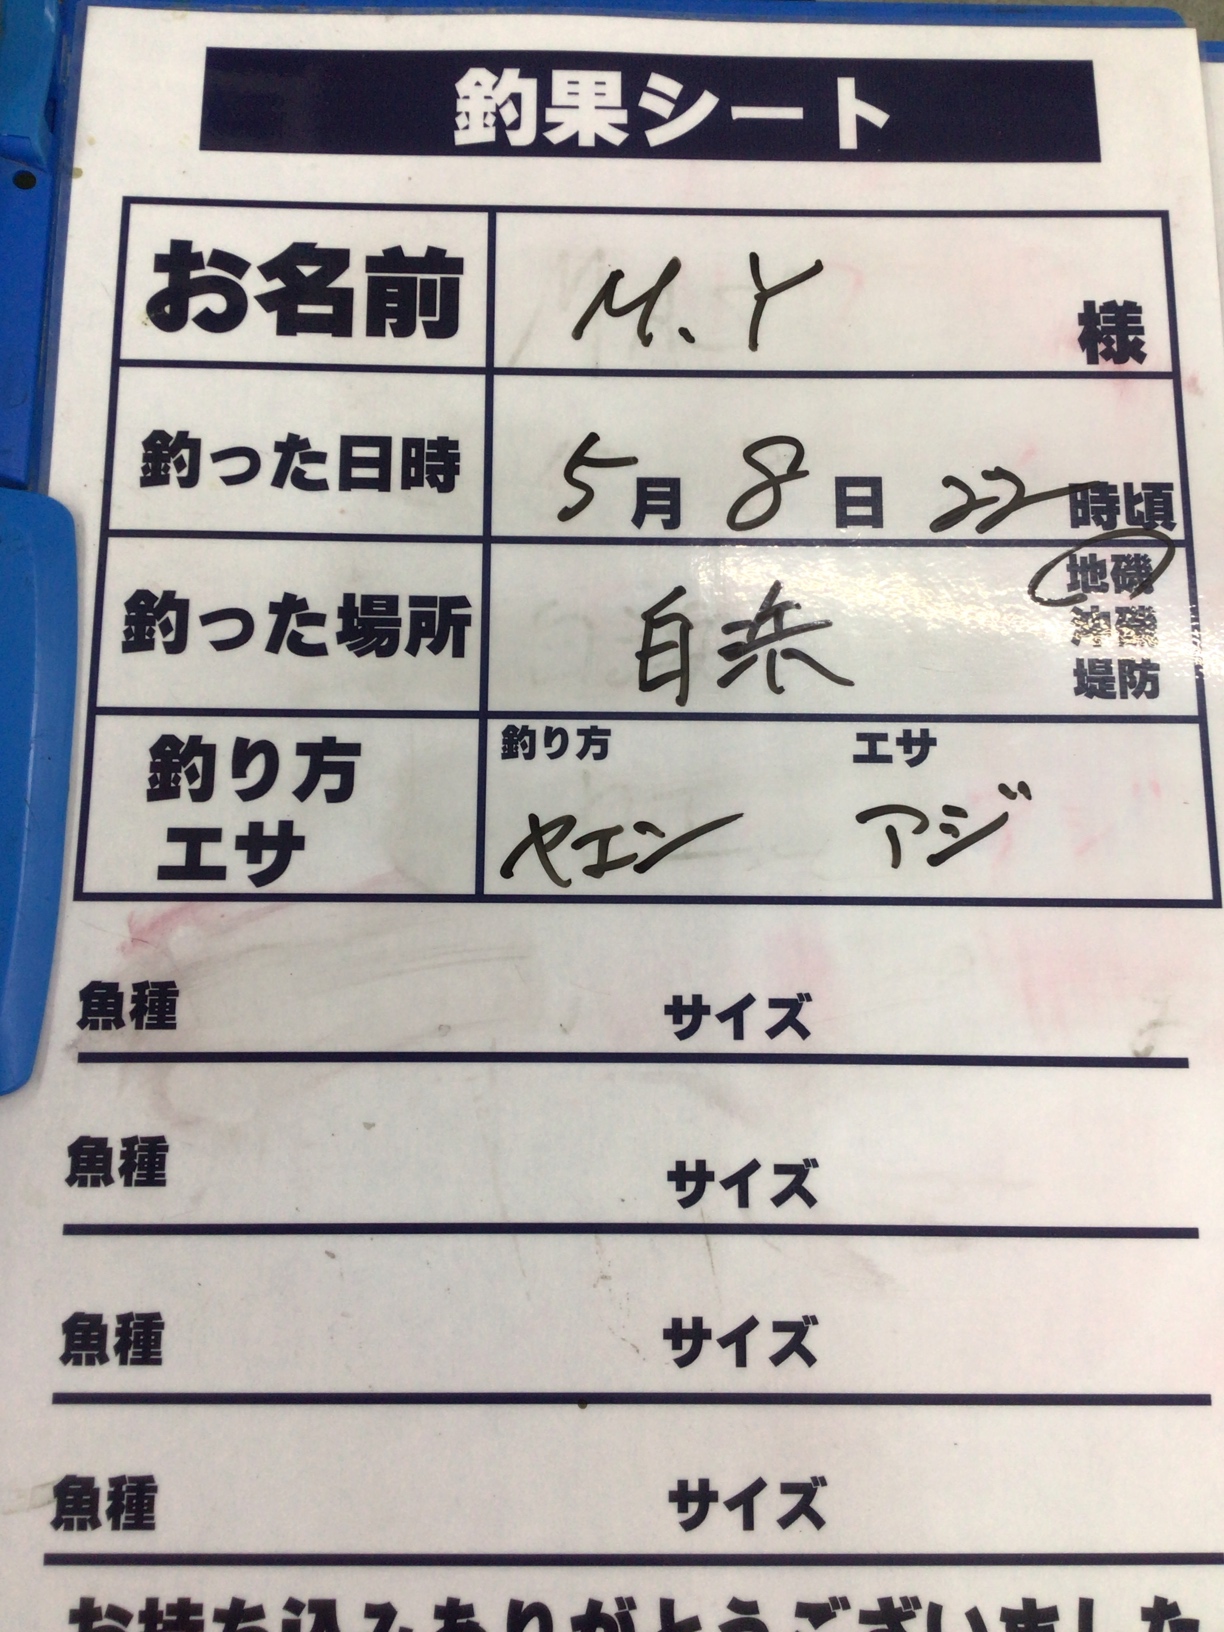 釣果シート
お名前 M.Y 様
釣った日時 5月8日 22時頃
釣った場所 白浜 地磯
沖磯
堤防
釣り方 エサ 釣り方 ヤエン エサ アジ
魚種 サイズ
魚種 サイズ
魚種 サイズ
魚種 サイズ
お持ち込みありがとうございました